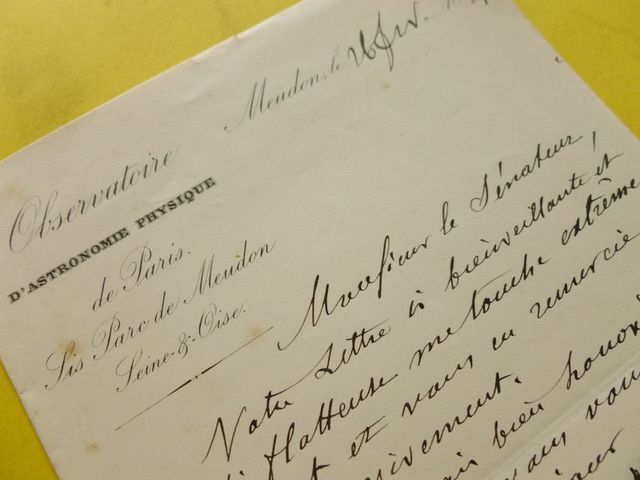 Meudon, le 26 fév.
Observatoire
D'ASTRONOMIE PHYSIQUE
de Paris.
Sis Parc de Meudon
Seine-&-Oise.
Monsieur le Sénateur,
Votre lettre si bienveillante et
si flatteuse me touche extrême
t et vous en remercie
sivement.
ais bien honoré
vous